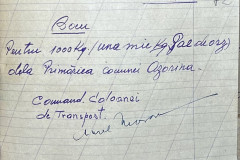 Bon
Pentru 1000 Kg. (una mie Kg) Pae de orz
dela Primăria comunei Ozorina.
Comand. Coloanei
de Transport.